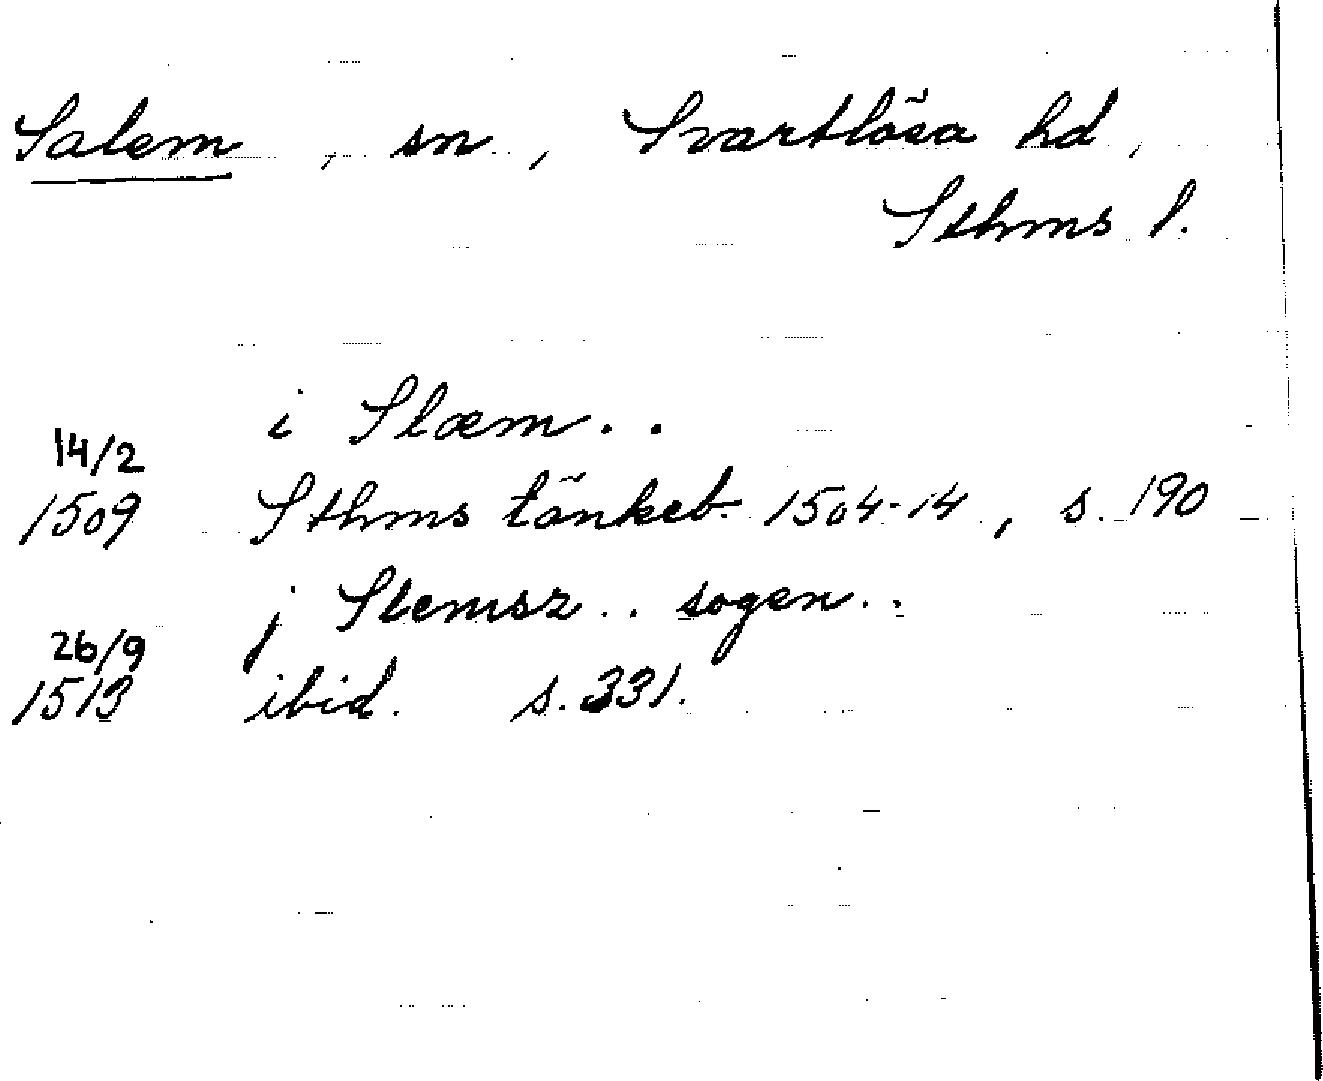 Salem, sn, Svartlösa hd,
Sthms l.
i Slæm..
14/2
1509 Sthms tänkeb. 1504-14, s. 190
j Slemsz.. sogen..
26/9
1513 ibid. s. 331.